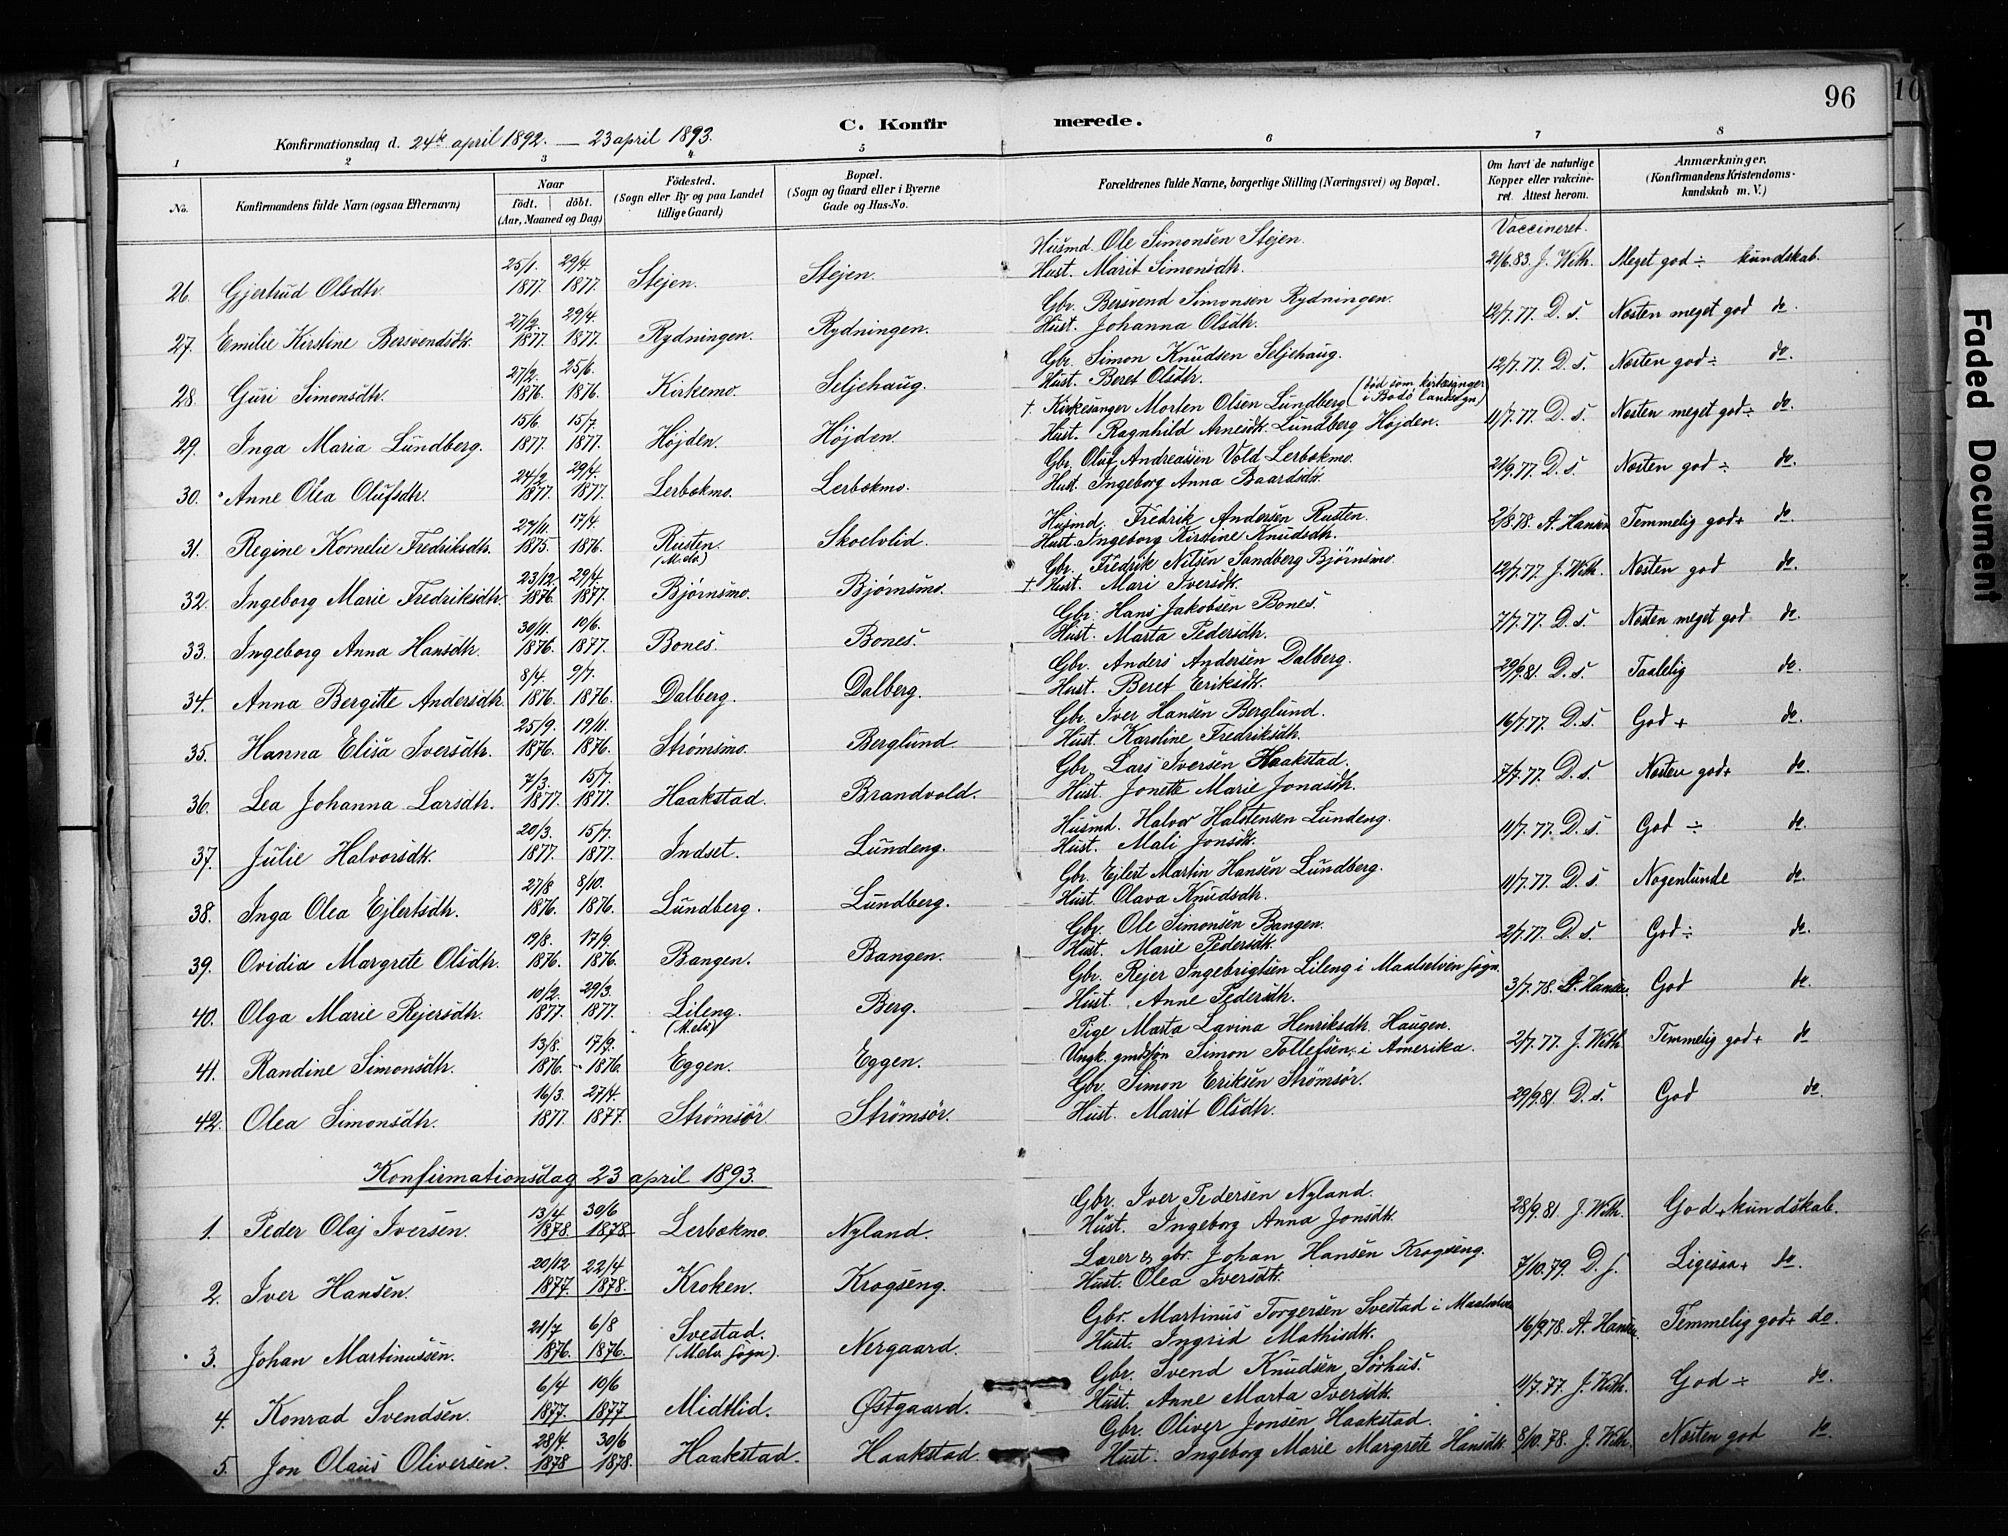 96
C. Konfirmerede.
Konfirmationsdag d. 24de april 1892. — 23 april 1893.
1 2 3 4 5 6 7 8
No. Konfirmandens fulde Navn (ogsaa Efternavn) Naar født. døbt. (Aar, Maaned og Dag) Födested. (Sogn eller By og paa Landet tillige Gaard) Bopæl. (Sogn og Gaard eller i Byerne Gade og Hus-No. Forældrenes fulde Navne, borgerlige Stilling (Næringsvei) og Bopæl. Om havt de naturlige Kopper eller vaccineret. Attest herom. Anmærkninger. (Konfirmandens Kristendomskundskab m. V.)
Vaccineret.
26. Gjertrud Olsdtr. 25/1. 1877. 29/4. 1877. Stejen. Stejen. Husmd. Ole Simonsen Stejen. Hust. Marit Simonsdtr. 21/6.83. J. With. Meget god ÷ kundskab.
27. Emilie Kirstine Bersvendsdtr. 27/2. 1877. 29/4. 1877. Rydningen. Rydningen. Gbr. Bersvend Simonsen Rydningen. Hust. Johanna Olsdtr. 12/7.77. D. s. Næsten meget god do.
28. Guri Simonsdtr. 27/2. 1876. 25/6. 1876. Kirkemo. Seljehaug. Gbr. Simon Knudsen Seljehaug. Hust. Beret Olsdtr. 12/7.77. D. s. Næsten god ÷ do.
29. Inga Maria Lundberg. 15/6 1877. 15/7. 1877. Højden. Højden. † Kirkesanger Morten Olsen Lundberg (død som kirkesanger i Bodö landsogn) Hust. Ragnhild Arnesdtr. Lundberg Højden. 11/7.77. D. s. Næsten meget god ÷ do.
30. Anne Olea Olufsdtr. 24/2. 1877. 29/4. 1877. Lerbækmo. Lerbækmo. Gbr. Oluf Andreassen Vold Lerbækmo. Hust. Ingeborg Anna Baardsdtr. 21/9.77. D. s. Næsten god ÷ do.
31. Regine Kornelie Fredriksdtr. 27/11. 1875. 17/4. 1876. Rusten. (M.elv.) Skoelvlid. Husmd. Fredrik Andersen Rusten. Hust. Ingeborg Kirstine Knudsdtr. 2/8.78. A. Hansen Temmelig god + do
32. Ingeborg Marie Fredriksdtr. 23/12. 1876. 29/4. 1877. Bjørnsmo. Bjørnsmo. Gbr. Fredrik Nilsen Sandberg Bjørnsmo. † Hust. Mari Iversdtr. 12/7.77. J. With. Næsten god do.
33. Ingeborg Anna Hansdtr. 30/11. 1876. 10/6. 1877. Bones. Bones. Gbr. Hans Jakobsen Bones. Hust. Marta Pedersdtr. 7/7.77. D. s. Næsten meget god do.
34. Anna Bergitte Andersdtr. 8/4. 1876. 9/7. 1876. Dalberg. Dalberg. Gbr. Anders Andersen Dalberg. Hust. Beret Eriksdtr. 29/9.81. D. s. Taalelig do.
35. Hanna Elisa Iversdtr. 25/9. 1876. 19/11. 1876. Strömsmo. Berglund. Gbr. Iver Hansen Berglund. Hust. Karoline Fredriksdtr. 16/7.77. D. s. God + do.
36. Lea Johanna Larsdtr. 7/3. 1877. 15/7. 1877. Haakstad. Brandvold. Gbr. Lars Iversen Haakstad. Hust. Jonette Marie Jonasdtr. 7/7.77. D. s. Næsten god + do.
37. Julie Halvorsdtr. 20/3. 1877. 15/7. 1877. Indset. Lundeng. Husmd. Halvor Halstensen Lundeng. Hust. Mali Jonsdtr. 11/7.77. D. s. God ÷ do.
38. Inga Olea Ejlertsdtr. 27/8 1876. 8/10. 1876. Lundberg. Lundberg. Gbr. Ejlert Martin Hansen Lundberg. Hust. Olava Knudsdtr. 11/7.77. D. s. Nogenlunde do.
39. Ovidia Margrete Olsdtr. 19/8. 1876. 17/9. 1876. Bangen. Bangen. Gbr. Ole Simonsen Bangen. Hust. Marie Pedersdtr. 2/7.77. D. s. God ÷ do.
40. Olga Marie Rejersdtr. 10/2. 1877. 29/3. 1877. Lileng. (M.elv.) Berg. Gbr. Rejer Ingebrigtsen Lileng i Maalselven sogn. Hust. Anne Pedersdtr. 3/7.78. A. Hansen. God do.
41. Randine Simonsdtr. 13/8. 1876. 17/9. 1876. Eggen. Eggen. Pige Marta Lavina Henriksdtr. Haugen. Ungk. gmdsøn Simon Tollefsen, i Amerika. 2/7.77. J. With Temmelig god + do
42. Olea Simonsdtr. 16/3. 1877. 27/4. 1877. Strömsör. Strömsör. Gbr. Simon Eriksen Strömsör. Hust. Marit Olsdtr. 29/9.81. D. s. God do.
Konfirmationsdag 23 april 1893.
1. Peder Olaj Iversen. 13/4 1878. 30/6 1878. Lerbækmo. Nyland. Gbr. Iver Pedersen Nyland. Hust. Ingeborg Anna Jonsdtr. 28/9.81. J. With. God + kundskab.
2. Iver Hansen. 20/12 1877. 22/4 1878. Kroken. Krogseng. Lærer & gbr. Johan Hansen Krogseng. Hust. Olea Iversdtr. 7/10.79. D. s. Ligesaa + do.
3. Johan Martinussen. 21/7 1876. 6/8 1876. Svestad. (Melv. sogn). Nergaard. Gbr. Martinus Torgersen Svestad i Maalselven Hust. Ingrid Mathisdtr. 16/9.78. A. Hansen. Temmelig god + do.
4. Konrad Svendsen. 6/4 1877. 10/6 1877. Midtlid. Østgaard. Gbr. Svend Knudsen Sørhus. Hust. Anne Marta Iversdtr. 11/7.77. J. With. God ÷ do.
5. Jon Olaus Oliversen. 28/4. 1878 30/6 1878. Haakstad. Haakstad. Gbr. Oliver Jonsen Haakstad. Hust. Ingeborg Marie Margrete Hansdtr. 8/10.78. J. With. Næsten god do
Faded Document